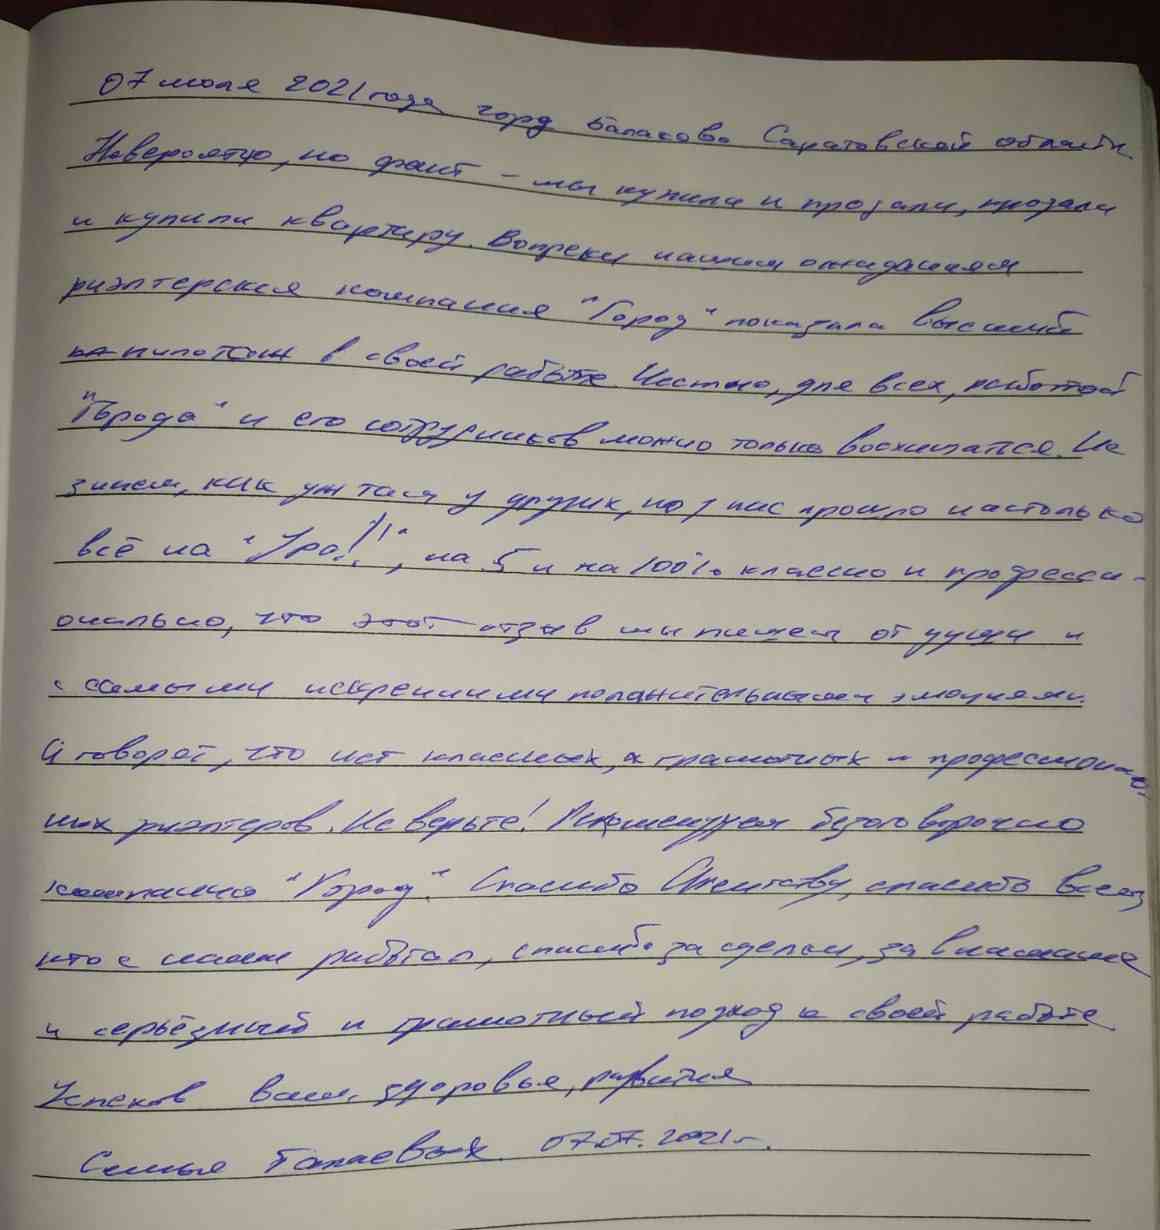 07 июля 2021 года город Балаково Саратовской области.
Невероятно, но факт - мы купили и продали, продали
и купили квартиру. Вопреки нашим ожиданиям
риэлтерская компания "Город" показала высший
пилотаж в своей работе. Честно, для всех, работой
"Города" и его сотрудников можно только восхищаться. Не
знаем, как уж там у других, но у нас прошло настолько
всё на "Ура!!!", на 5 и на 100% классно и професси-
онально, что этот отзыв мы пишем от души и
с самыми искренними положительными эмоциями.
А говорят, что нет классных, а грамотных и профессиональ-
ных риэлтеров. Не верьте! Рекомендуем безоговорочно
компанию "Город". Спасибо Агентству, спасибо всем,
кто с нами работал, спасибо за сделки, за внимание
и серьёзный и грамотный подход к своей работе.
Успехов Вам, здоровья, развития
Семья 07.07.2021г.